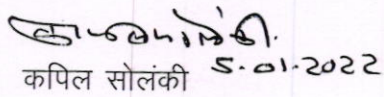 कपिल सोलंकी 5-01-2022